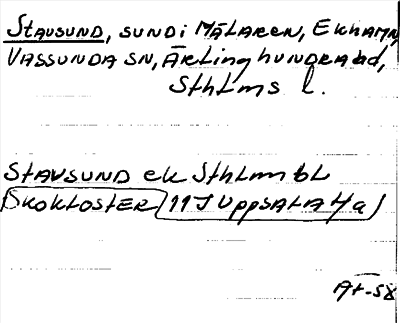 Stavsund, sund i Mälaren, Ekhamn,
Vassunda sn, Ärlinghundra hd,
Sthlms l.
Stavsund ek Sthlm bl
Skokloster 11 I Uppsala 4/a
At-58